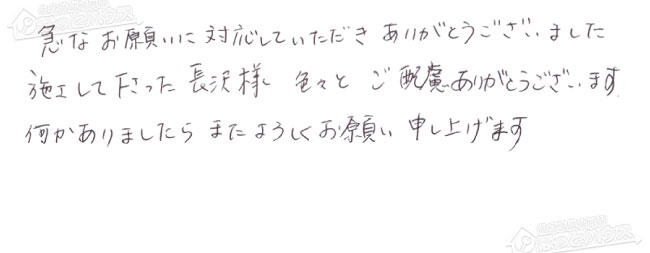 急なお願いに対応していただきありがとうございました
施工して下さった長沢様 色々とご配慮ありがとうございます
何かありましたらまたよろしくお願い申し上げます